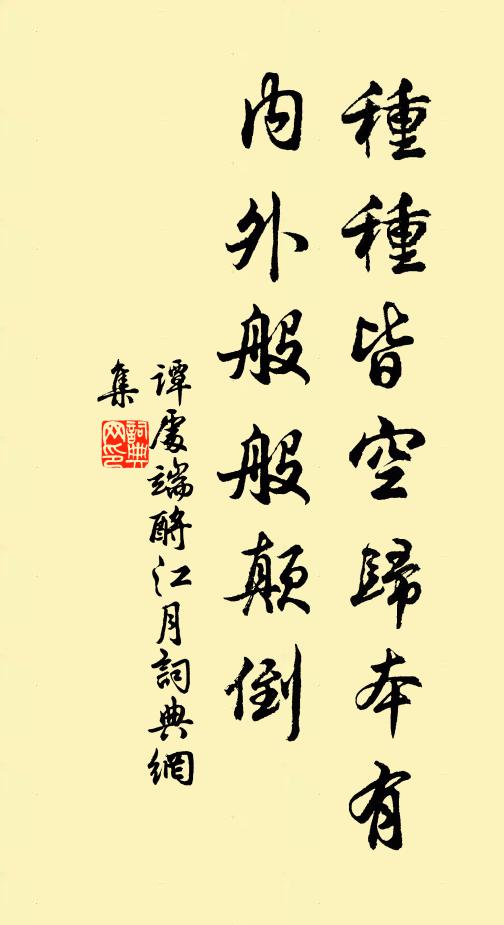 種種皆空歸本有
內外般般顛倒
譚處端酹江月詞典網
集
詞典
网印